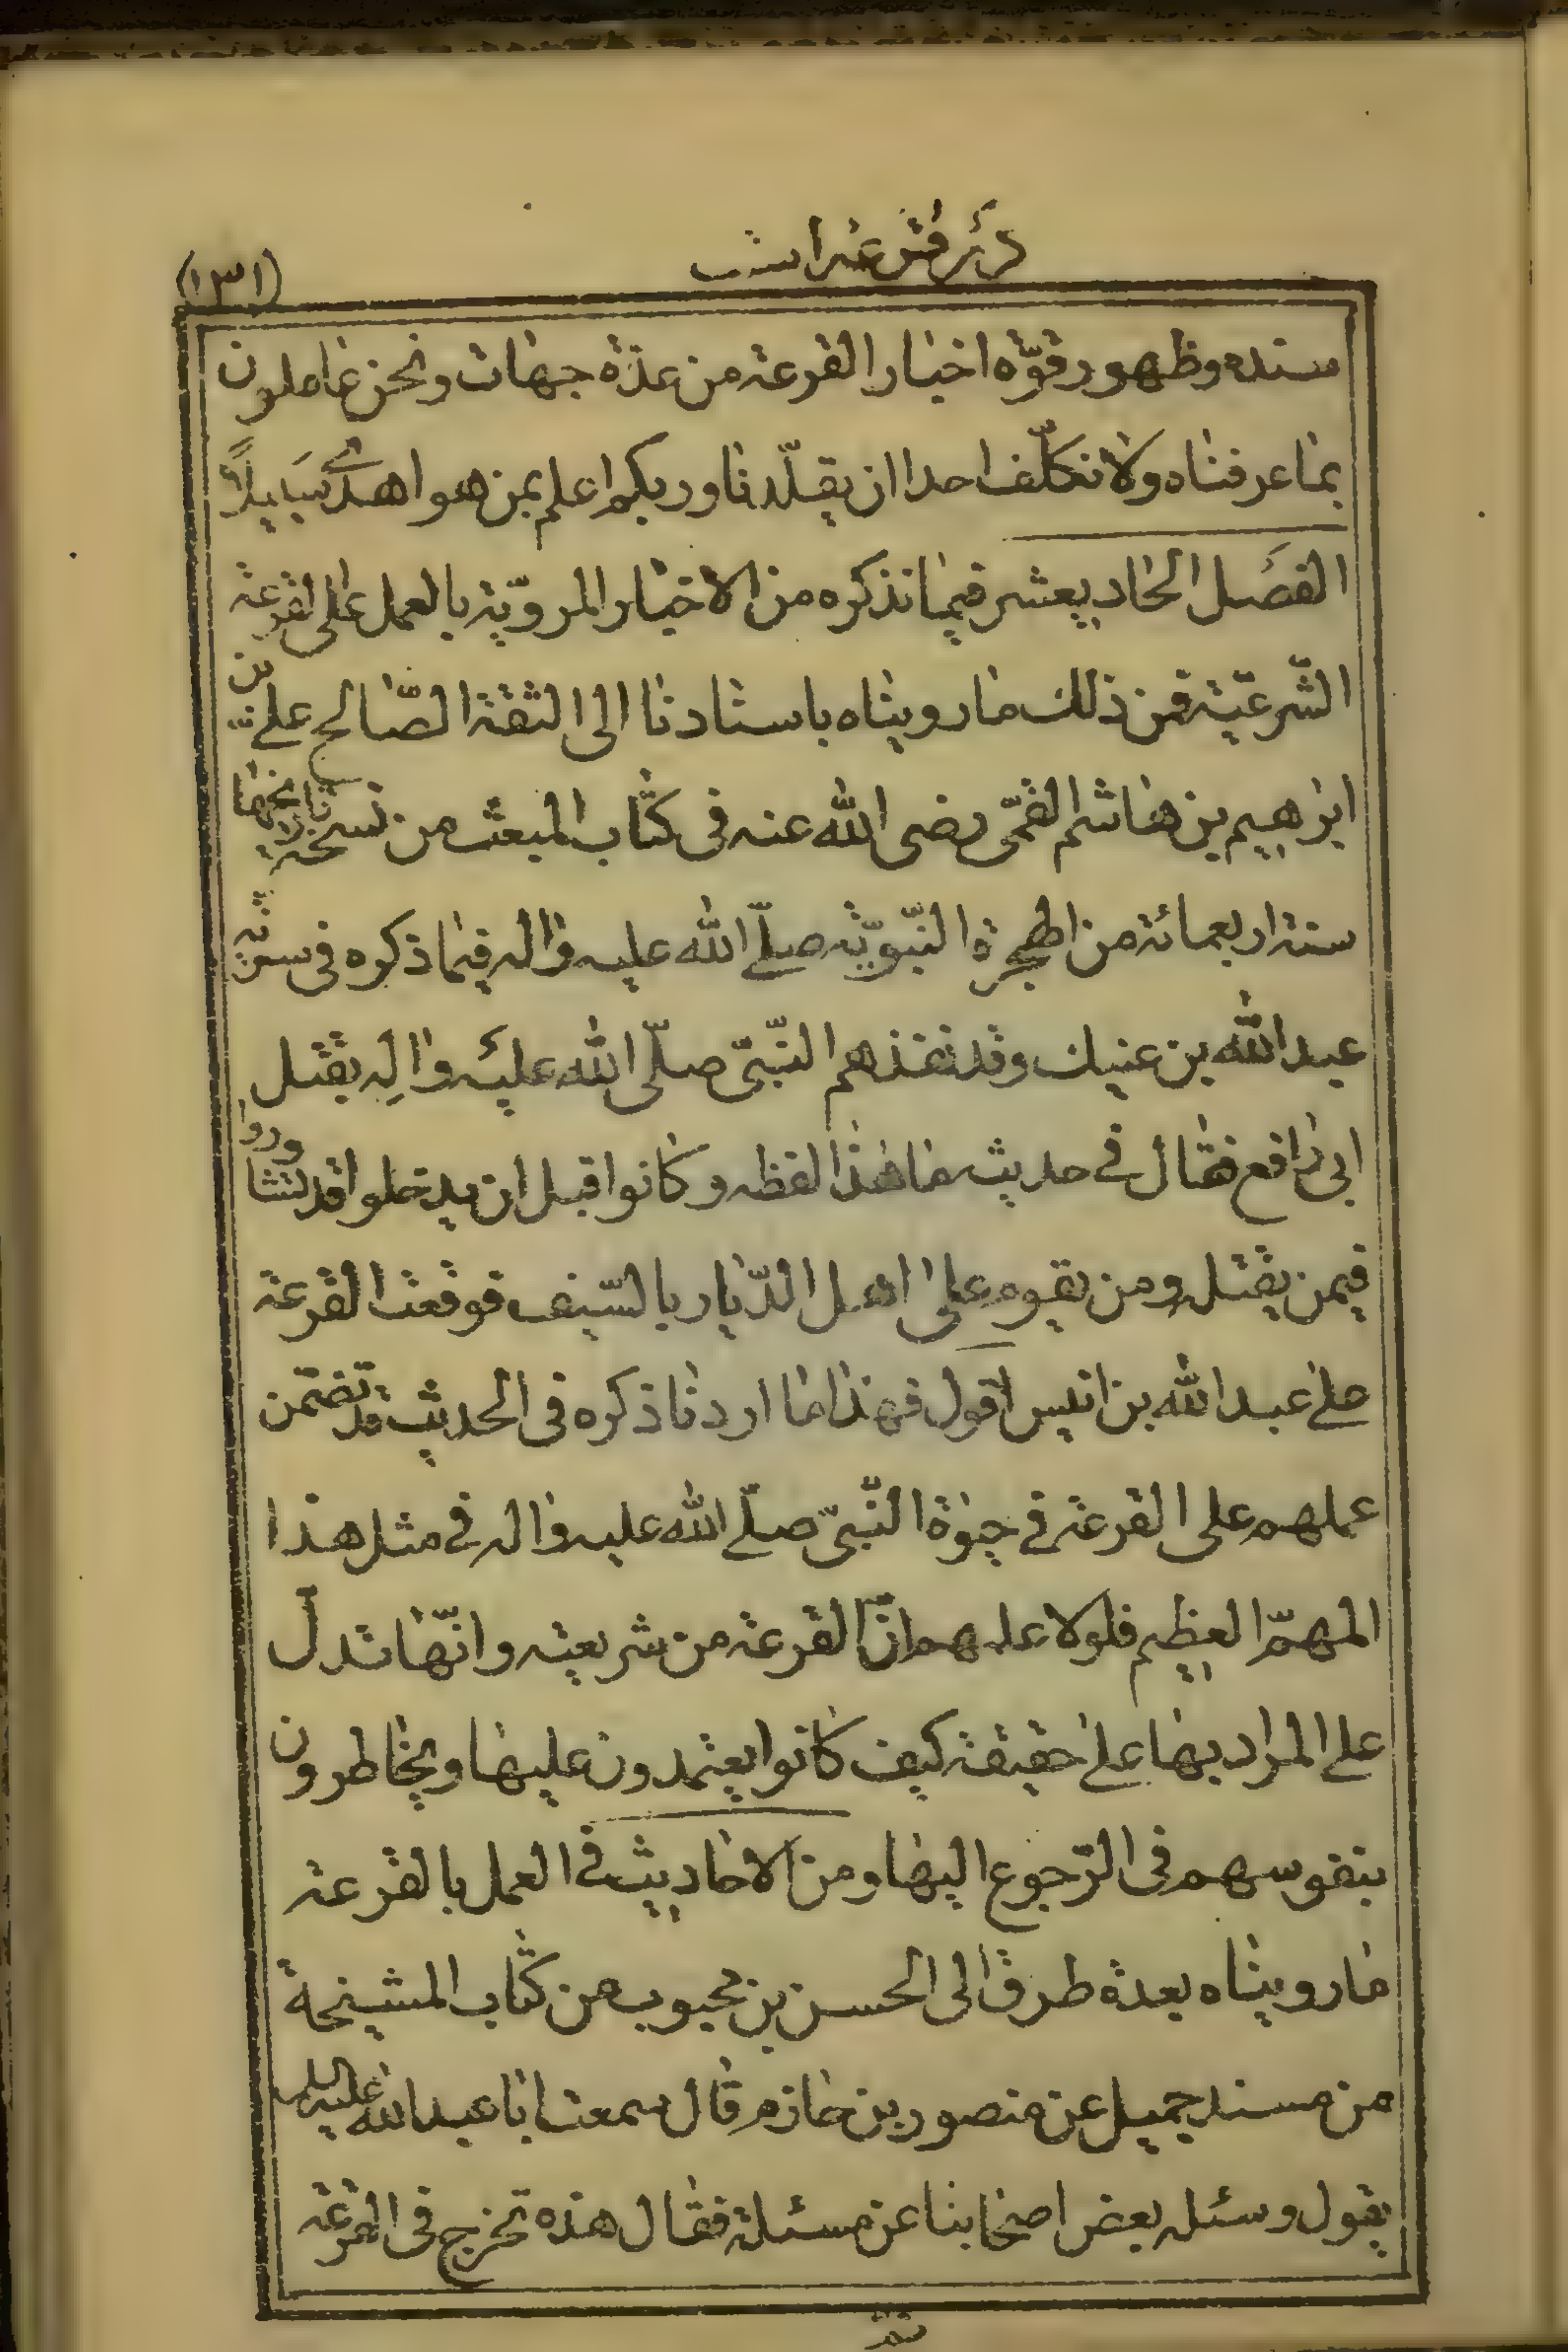 (١٣١)
سنده وظهور قوّه اخبار القرعة من عدّة جهات ونحن عاملون
بما عرفناه ولا نكلّف احدا ان يقلّدنا وربكم اعلم بمن هو اهدى سَبيلاً
الفَصَل الحاد يعشر فيما نذكره من الاخبار المرويّة بالعمل على القرعة
الشّرعيّة فمن ذلك ما رويناه باسنادنا الى الثقة الصّالح علىّ بن
ابرهيم بن هاشم القمّى رضى الله عنه فى كتاب المبعث من نسخة تاريخها
سنة اربعمائة من الهجرة النّبويّة صلّى الله عليه واله فيما ذكره فى سريّة
عبد الله بن عتيك وقد نفذهم النّبىّ صلّى الله عليه والِه بقتل
ابى رافع فقال فى حديث ما هذا لفظه وكانوا قبل ان يدخلوا قد تشاوروا
فيمن يقتله ومن يقوم على اهل الدّيار بالسّيف فوقعت القرعة
على عبد الله بن انيس اقول فهذا ما اردنا ذكره فى الحديث قد تضمن
عملهم على القرعة فى حيوة النّبىّ صلّى الله عليه واله فى مثل هذا
المهمّ العظيم فلولا علمهم انّ القرعة من شريعته وانّها تدلّ
على المراد بها على حقيقة كيف كانوا يعتمدون عليها ويخاطرون
بنفوسهم فى الرّجوع اليها ومن الاحاديث فى العمل بالقرعة
ما رويناه بعدة طرق الى الحسن بن محبوب من كتاب المشيخة
من مسند جميل عن منصور بن حازم قال سمعت ابا عبد الله عليه السلم
يقول وسئله بعض اصحابنا عن مسئلة فقال هذه تخرج فى القرعة